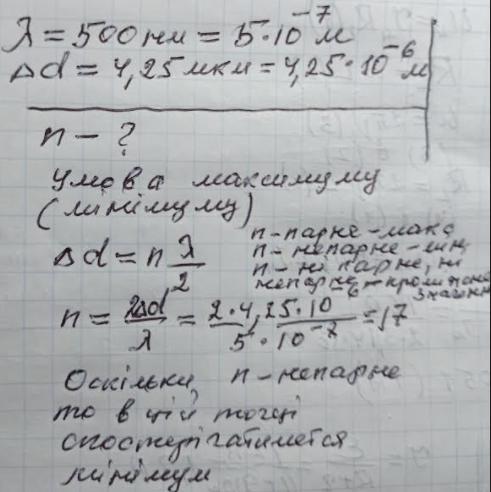 λ = 500 нм = 5·10⁻⁷ м
Δd = 4,25 мкм = 4,25·10⁻⁶ м
n - ?
Умова максимуму
(мінімуму)
n - парне - макс
n - непарне - мін
n - ні парне, ні
непарне - проміжне
значення
Δd = n λ/2
n = 2Δd/λ = 2·4,25·10⁻⁶/5·10⁻⁷ = 17
Оскільки n - непарне
то в цій точці
спостерігатиметься
мінімум